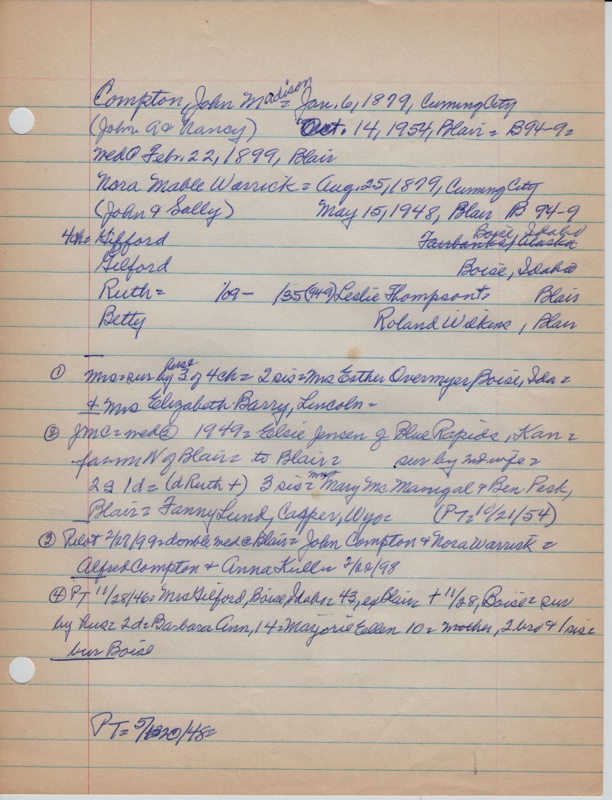 Compton, John Madison = Jan. 6, 1879, Cuming City
(John A & Nancy) Oct. 14, 1954, Blair = B94-9 =
wed @ Feb. 22, 1899, Blair
Nora Mable Warrick = Aug. 25, 1879, Cuming City
(John & Sally) May 15, 1948, Blair B 94-9
4ch = Gifford Fairbanks, Alaska Boise, Idaho
Gilford Boise, Idaho
Ruth = 1/09 - 1/35 (949) Leslie Thompson +, Blair
Betty Roland Wilkins, Blair
① Mrs = sur by hus & 3 of 4 ch = 2 sis = Mrs Esther Overmyer Boise, Ida =
& Mrs Elizabeth Barry, Lincoln =
② JMC = wed @ 1949 = Elsie Jensen of Blue Rapids, Kan =
farm N of Blair = to Blair = sur by 2nd wife =
2s 1d = (d Ruth +) 3 sis = Mmes Mary McManigal & Ben Peck,
Blair = Fanny Lund, Casper, Wyo = (PT = 10/21/54)
③ Pilot 2/27/99 = double wed @ Blair = John Compton & Nora Warrick =
Alfred Compton & Anna 2/22/98
④ PT 11/28/46 = Mrs Gilford, Boise, Idaho = 43, ex Blair + 11/28, Boise = sur
by hus = 2d = Barbara Ann, 14 = Marjorie Ellen 10 = mother, 2 bro & 1 sis =
bur Boise
PT = 5/20/48 =